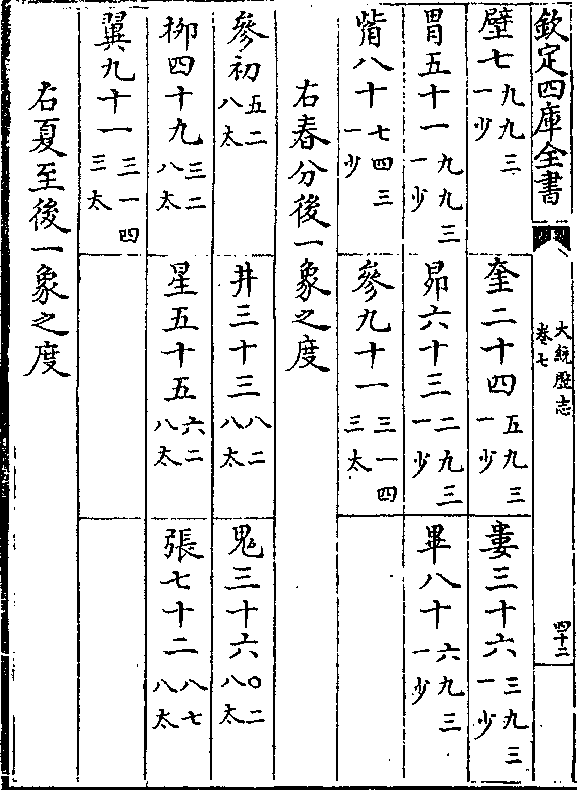 欽定四庫全書
大統厯志
卷七
四十二
壁七 九九三一少 奎二十四 五九三一少 婁三十六 三九三一少
胃五十一 九九三一少 昴六十三 二九三一少 畢八十 六九三一少
觜八十 七四三一少 參九十一 三一四三太
右春分後一象之度
參初 五二八太 井三十三 八二八太 鬼三十六 〇二八太
柳四十九 三二八太 星五十五 六二八太 張七十二 八七八太
翼九十一 三一四三太
右夏至後一象之度